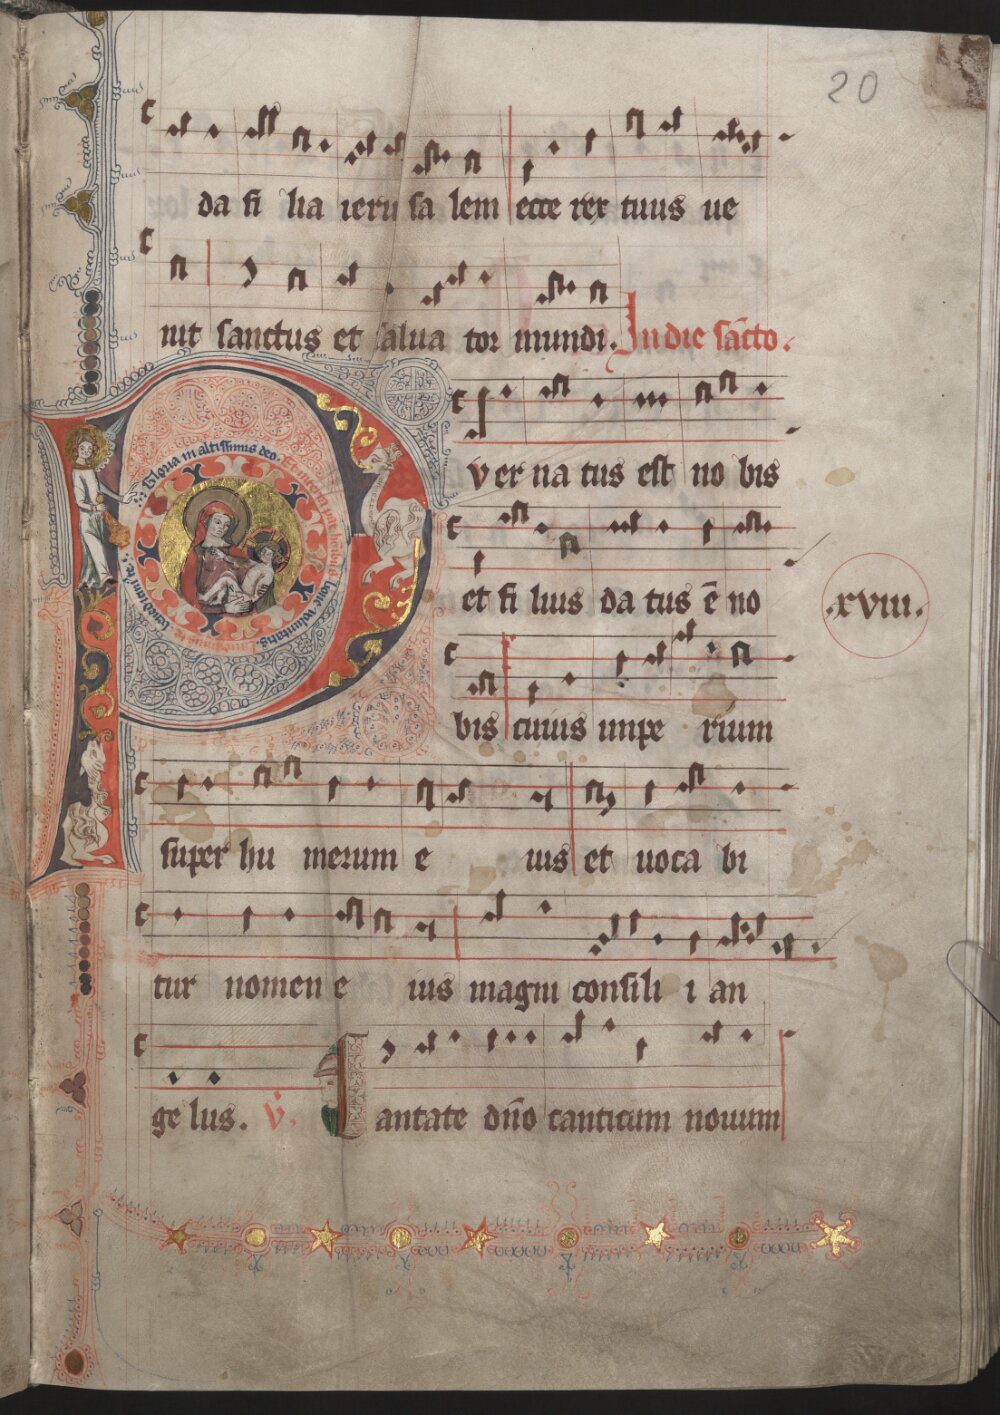 20
da fi lia ieru sa lem ecce rex tuus ue
nit sanctus et salua tor mundi. In die sc̄to.
P v er na tus est no bis
Gloria in altissimis deo. Et in terra pax hominibus bone voluntatis.
et fi lius da tus ē no
.xviii.
bis cuius impe rium
super hu merum e ius et uoca bi
tur nomen e ius magni consili i an
ge lus. V̇. C antate dn̄o canticum nouum